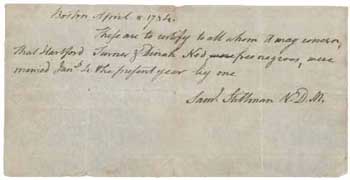 Boston April 8. 1784.
These are to certify to all whom it may concern,
that Hartford Turner & Dinah free negroes, were
married Jany 4 the present year by me
Saml Stillman V. D. M.